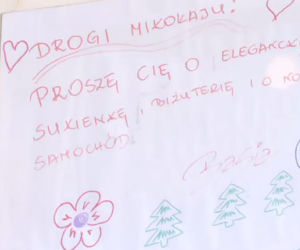 DROGI MIKOŁAJU!
PROSZĘ CIĘ O ELEGANCK
SUKIENKĘ, BIŻUTERIĘ I O KO
SAMOCHÓD.
Basia